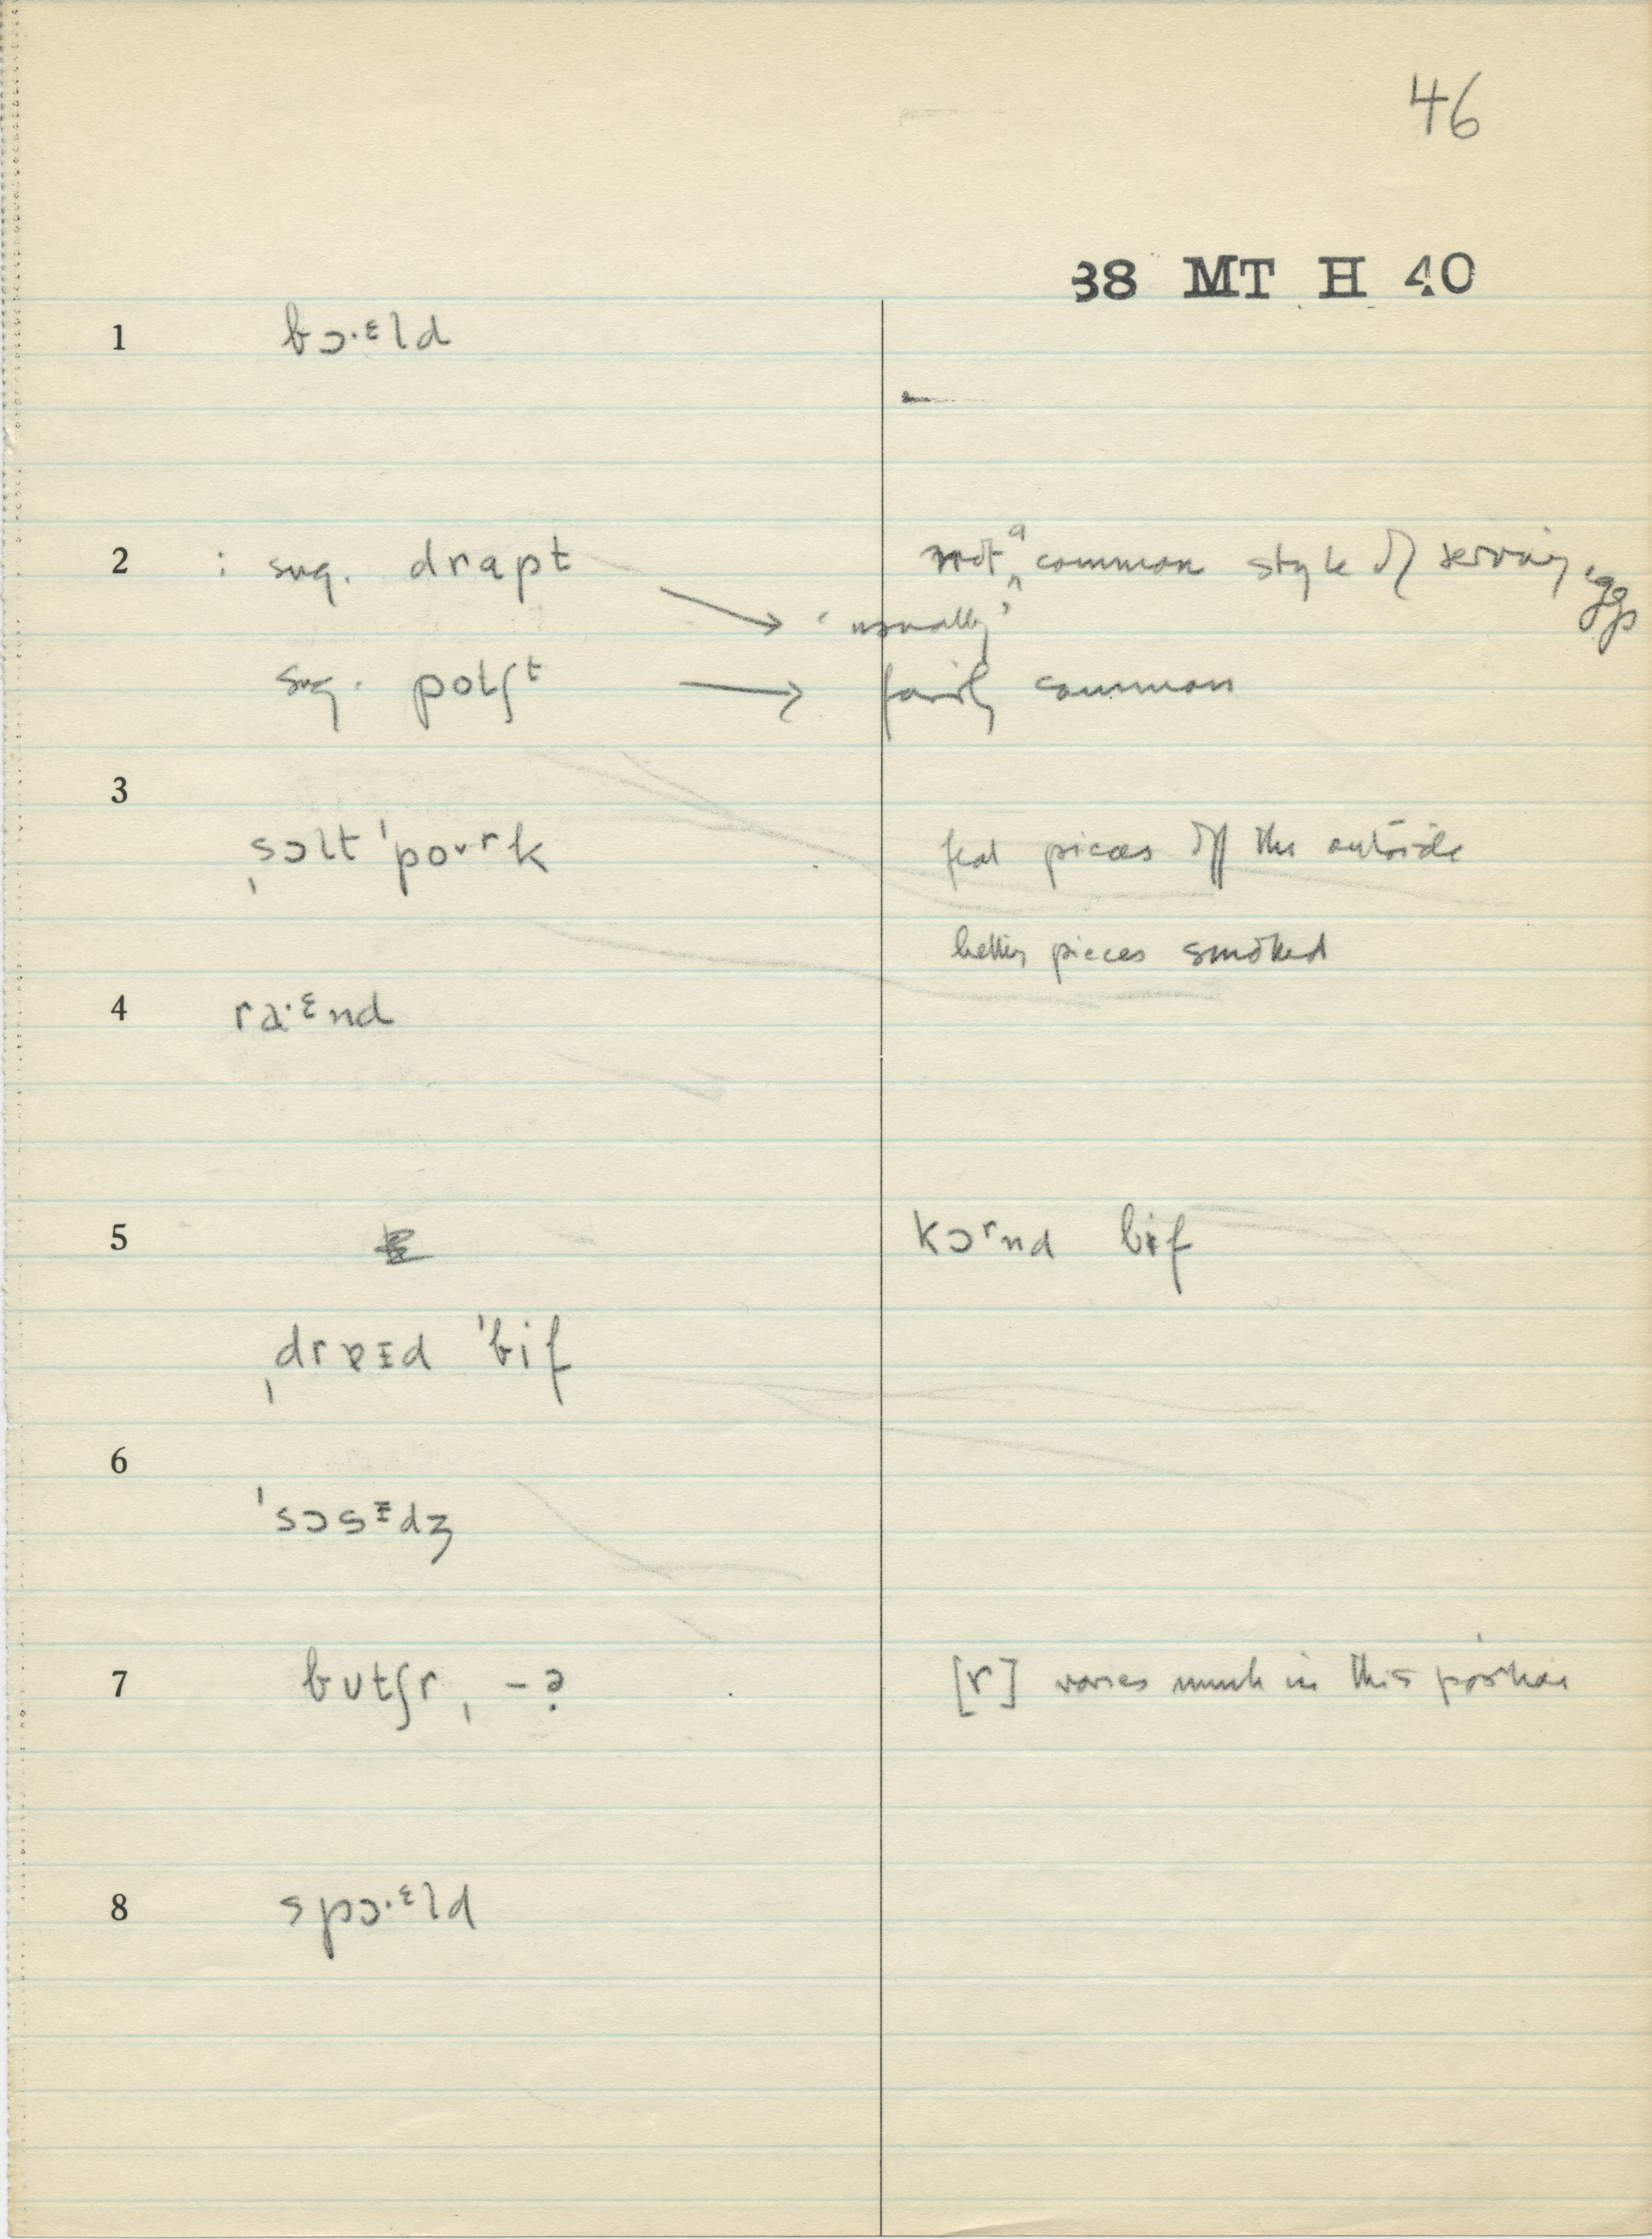 46
38 MT H 40
1 bɔ·ᵋld
2 : sug. drapt → 'usually' not ^a common style of serving eggs
sug. potʃᵗ → fairly common
3
ˌsɔlt ˈpoᵘʳk fat pieces off the outside
better pieces smoked
4 ra·ᵋnd
5 kɔʳnd bɨf
ˌdrɐɪd ˈbif
6
ˈsɔsᵻdʒ
7 butʃr, -ə [r] varies much in this position
8 spɔ·ᵋld